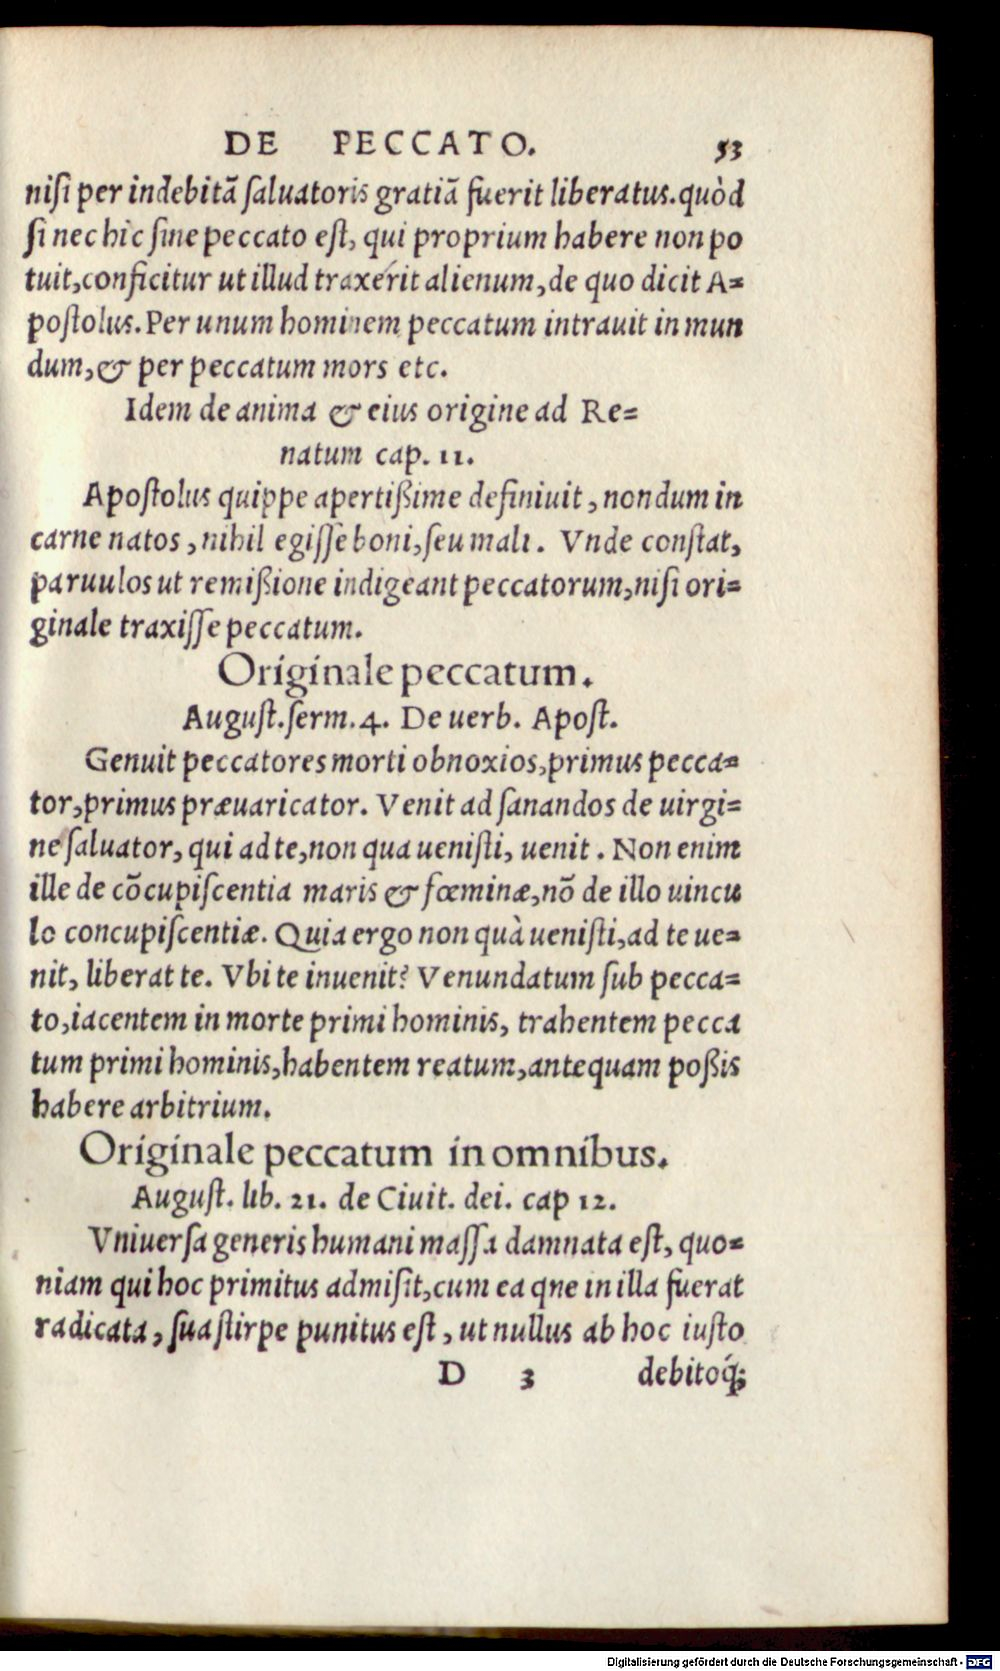 DE PECCATO. 53
nisi per indebitã saluatoris gratiã fuerit liberatus. quòd
si nec hìc sine peccato est, qui proprium habere non po
tuit, conficitur ut illud traxérit alienum, de quo dicit A=
postolus. Per unum hominem peccatum intrauit in mun
dum, & per peccatum mors etc.
Idem de anima & eius origine ad Re=
natum cap. 11.
Apostolus quippe apertißime definiuit, nondum in
carne natos, nihil egisse boni, seu mali. Vnde constat,
paruulos ut remißione indigeant peccatorum, nisi ori=
ginale traxisse peccatum.
Originale peccatum.
August. serm. 4. De uerb. Apost.
Genuit peccatores morti obnoxios, primus pecca=
tor, primus præuaricator. Venit ad sanandos de uirgi=
ne saluator, qui ad te, non qua uenisti, uenit. Non enim
ille de cõcupiscentia maris & fœminæ, nõ de illo uincu
lo concupiscentiæ. Quia ergo non quà uenisti, ad te ue=
nit, liberat te. Vbi te inuenit? Venundatum sub pecca=
to, iacentem in morte primi hominis, trahentem pecca
tum primi hominis, habentem reatum, antequam poßis
habere arbitrium.
Originale peccatum in omnibus.
August. lib. 21. de Ciuit. dei. cap 12.
Vniuersa generis humani massa damnata est, quo=
niam qui hoc primitus admisit, cum ea qne in illa fuerat
radicata, sua stirpe punitus est, ut nullus ab hoc iusto
D 3 debitoq́;
Digitalisierung gefördert durch die Deutsche Forschungsgemeinschaft - DFG